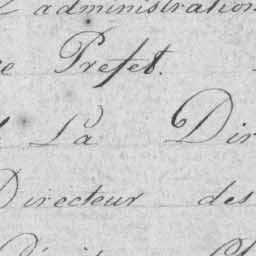 administration
Prefet.
La Dir
Directeur des